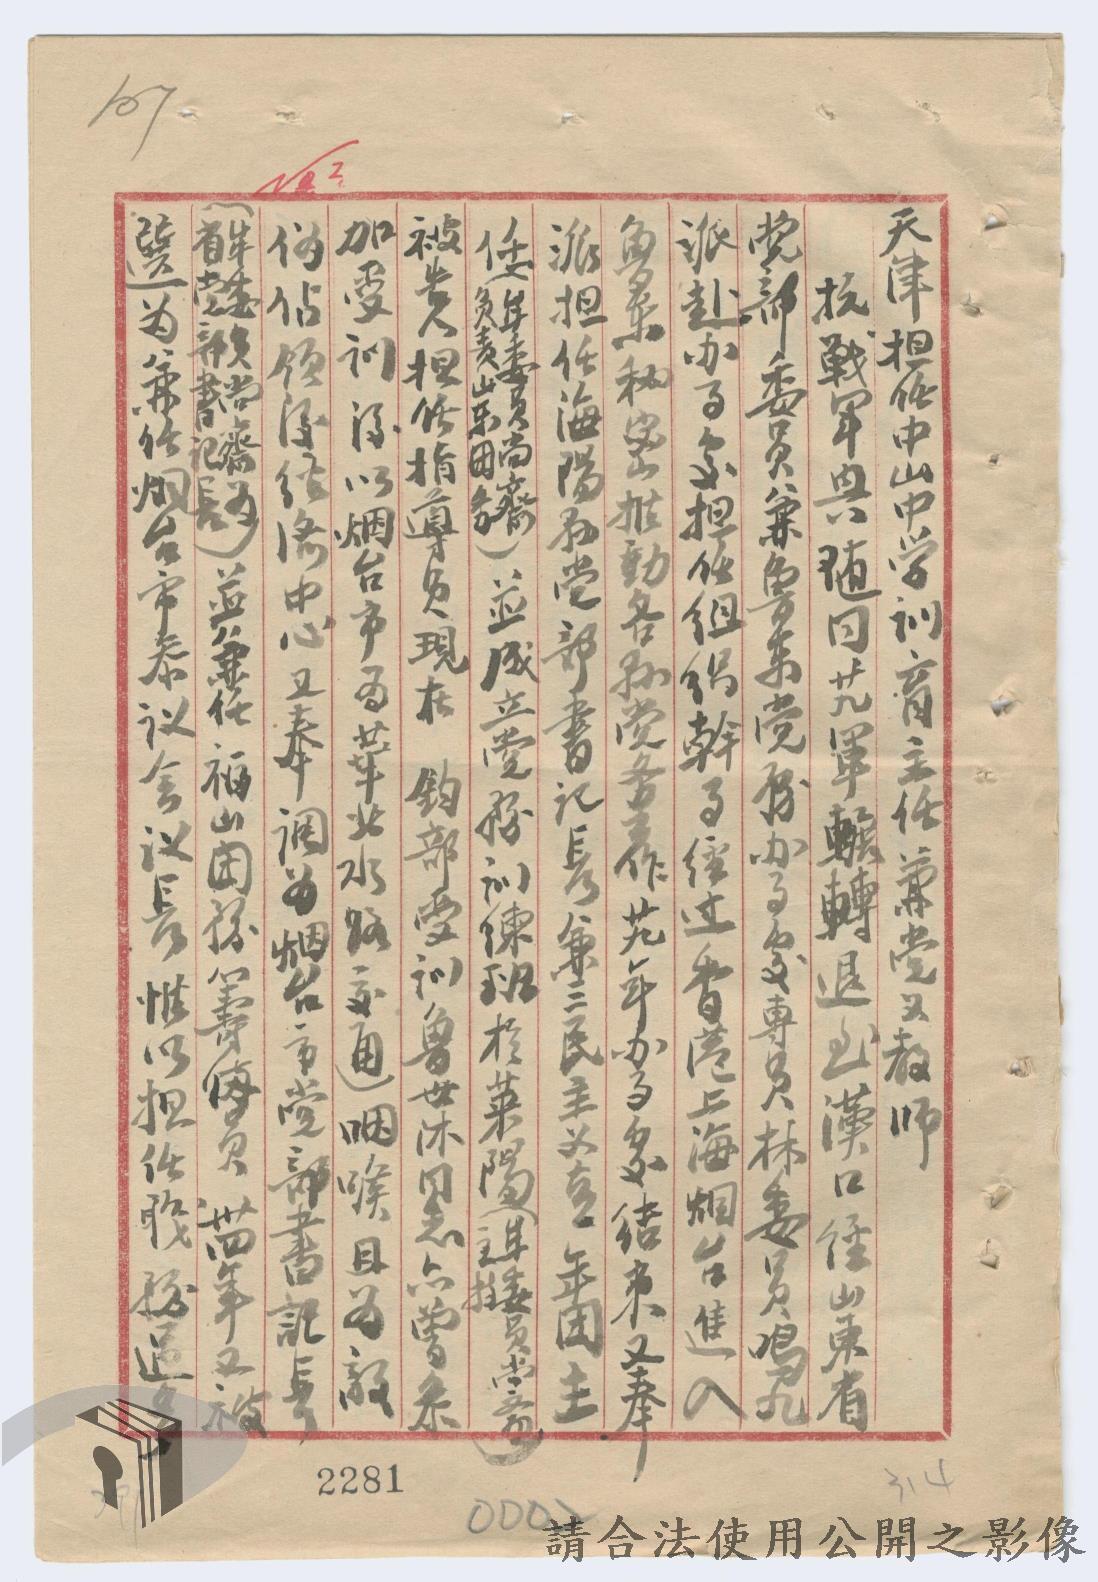 107
天津担任中山中学训育主任兼党义教师
抗战军兴随同廿九军辗转退至汉口经山東省
党部委员兼鲁東党務办事处專员林委员鳴九
派赴办事处担任组织幹事经过香港上海烟台進入
鲁東秘密推動各縣党务工作廿九年办事处结束又奉
派担任海陽縣党部書记長兼三民主义青年团主
任(牟委员尚齋負責山東团务)並成立党務训練班於莱陽(牟委員尚齋主持)
被责担任指導员現在 鈞部受训鲁世沐同志亦曾参
加受训后以烟台市为華北水路交通咽喉且为敌
伪佔领后经济中心又奉调为烟台市党部書記長
(牟委员尚齋为省党部書记長)並兼任福山团務筹備员 卅四年又被
選为兼任烟台市参议会议長惟以担任职務過多
2281
0002
314
請合法使用公開之影像